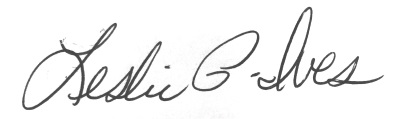 Leslie G. Ives